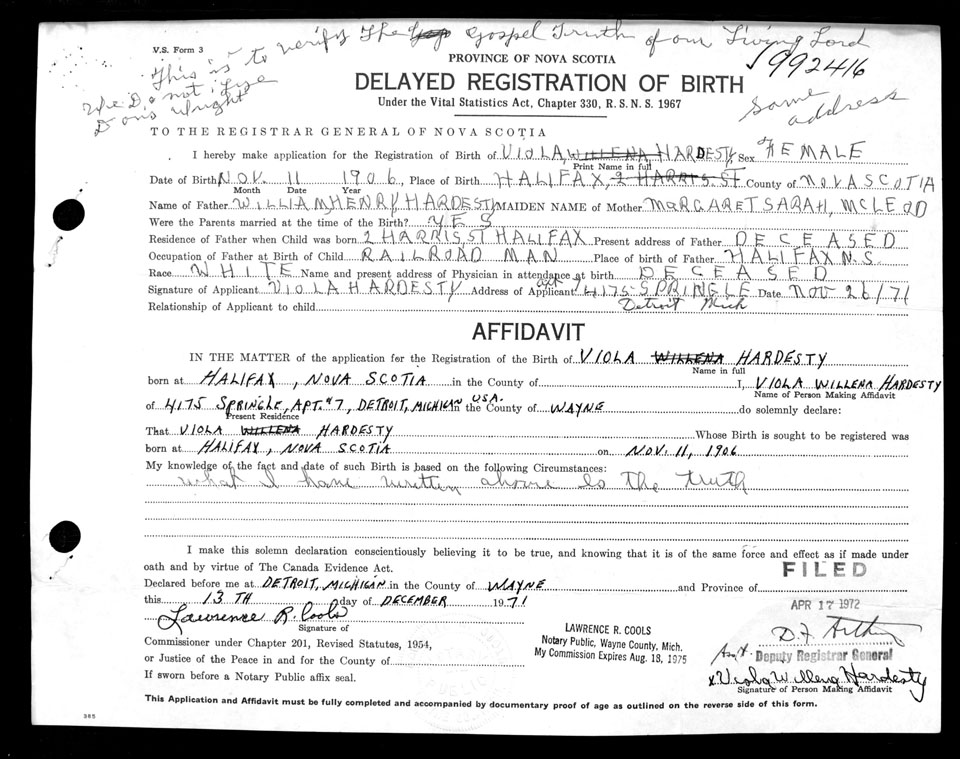 V.S. Form 3
This is to verify The Gospel Truth of our Living Lord
We Do not Lye
Doris Wright
PROVINCE OF NOVA SCOTIA
DELAYED REGISTRATION OF BIRTH
Under the Vital Statistics Act, Chapter 330, R. S. N. S. 1967
992416
Same address
TO THE REGISTRAR GENERAL OF NOVA SCOTIA
I hereby make application for the Registration of Birth of VIOLA, WILLENA HARDESTY, Sex FEMALE
Print Name in full
Date of Birth NOV. 11 1906, Place of Birth HALIFAX, 2 HARRIS. ST County of NOVA SCOTIA
Month Date Year
Name of Father WILLIAM, HENRY HARDESTY MAIDEN NAME of Mother MARGARET SARAH, MCLEOD
Were the Parents married at the time of the Birth? YES
Residence of Father when Child was born 2 HARRIS, ST HALIFAX Present address of Father DECEASED
Occupation of Father at Birth of Child RAILROAD MAN Place of birth of Father HALIFAX N.S.
Race WHITE Name and present address of Physician in attendance at birth DECEASED
Signature of Applicant VIOLA HARDESTY Address of Applicant apt 7 4175 SPRINGLE Date NOV 26/71
Relationship of Applicant to child Detroit Mich
AFFIDAVIT
IN THE MATTER of the application for the Registration of the Birth of VIOLA WILLENA HARDESTY
Name in full
born at HALIFAX, NOVA SCOTIA in the County of I, VIOLA WILLENA HARDESTY
Name of Person Making Affidavit
of 4175 SPRINGLE, APT. #7, DETROIT, MICHIGAN U.S.A. in the County of WAYNE do solemnly declare:
Present Residence
That VIOLA WILLENA HARDESTY Whose Birth is sought to be registered was
born at HALIFAX, NOVA SCOTIA on NOV. 11, 1906
My knowledge of the fact and date of such Birth is based on the following Circumstances:
what I have written above is the truth
I make this solemn declaration conscientiously believing it to be true, and knowing that it is of the same force and effect as if made under
oath and by virtue of The Canada Evidence Act.
FILED
Declared before me at DETROIT, MICHIGAN in the County of WAYNE and Province of
this 13 TH day of DECEMBER 1971
APR 17 1972
Lawrence R. Cools
Signature of
Commissioner under Chapter 201, Revised Statutes, 1954,
or Justice of the Peace in and for the County of
If sworn before a Notary Public affix seal.
LAWRENCE R. COOLS
Notary Public, Wayne County, Mich.
My Commission Expires Aug. 18, 1975
Deputy Registrar General
x Viola Willena Hardesty
Signature of Person Making Affidavit
This Application and Affidavit must be fully completed and accompanied by documentary proof of age as outlined on the reverse side of this form.
385